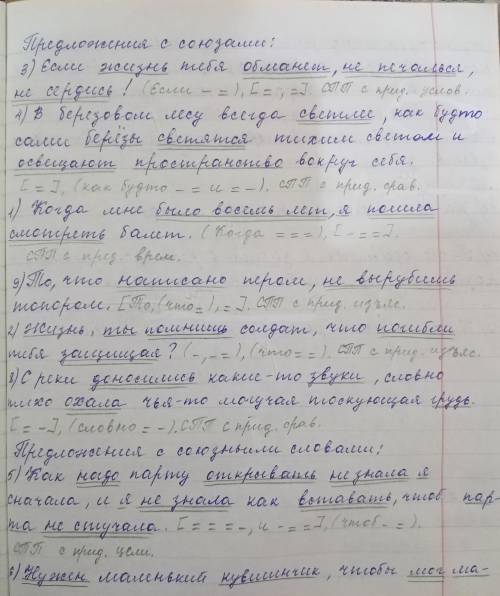 Предложения с союзами:
3) Если жизнь тебя обманет, не печалься,
не сердись! (Если - =), [= , =]. СПП с прид. услов.
4) В березовом лесу всегда светлее, как будто
сами берёзы светятся тихим светом и
освещают пространство вокруг себя.
[=], (как будто - = и = -). СПП с прид. срав.
1) Когда мне было восемь лет, я пошла
смотреть балет. (Когда = = =), [- = =].
СПП с прид. врем.
9) То, что написано пером, не вырубишь
топором. [То, (что =), =]. СПП с прид. изъяс.
2) Жизнь, ты помнишь солдат, что погибли
тебя защищая? (-, - =), (что = =). СПП с прид. изъяс.
8) С реки доносились какие-то звуки, словно
тихо охала чья-то могучая тоскующая грудь.
[= -], (словно = -). СПП с прид. срав.
Предложения с союзными словами:
5) Как надо парту открывать не знала я
сначала, и я не знала как вставать, чтоб пар-
та не стучала. [= = = -, и - = =], (чтоб - =).
СПП с прид. цели.
6) Нужен маленький кувшинчик, чтобы мог ма-